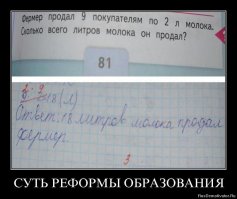 Фермер продал 9 покупателям по 2 л молока.
Сколько всего литров молока он продал?
81
18(л)
Ответ: 18 литров молока продал
фермер.
СУТЬ РЕФОРМЫ ОБРАЗОВАНИЯ